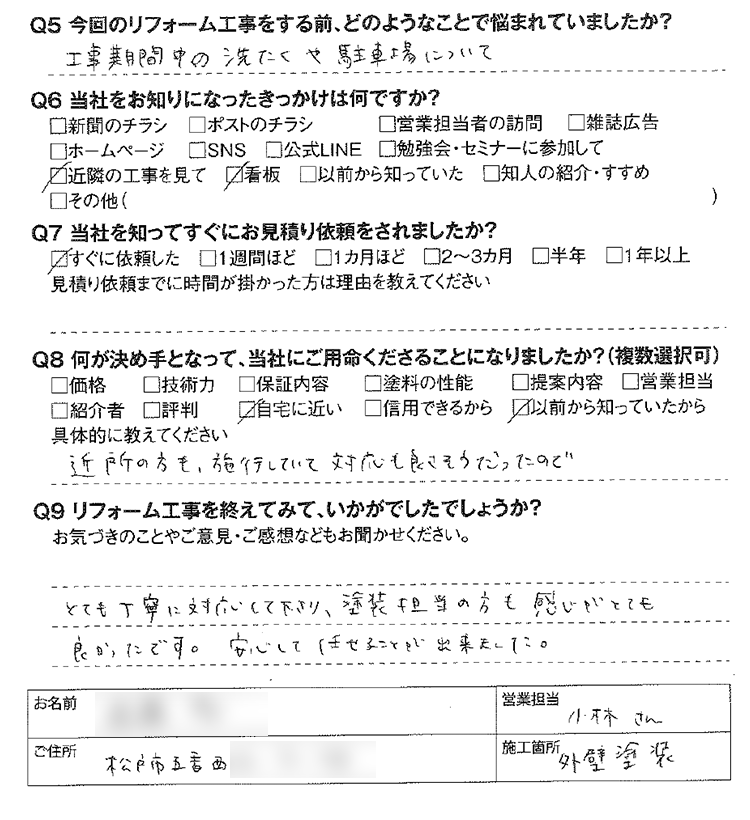 Q5 今回のリフォーム工事をする前、どのようなことで悩まれていましたか?
工事期間中の洗たくや駐車場について
Q6 当社をお知りになったきっかけは何ですか?
□新聞のチラシ □ポストのチラシ □営業担当者の訪問 □雑誌広告
□ホームページ □SNS □公式LINE □勉強会・セミナーに参加して
☑近隣の工事を見て ☑看板 □以前から知っていた □知人の紹介・すすめ
□その他( )
Q7 当社を知ってすぐにお見積り依頼をされましたか?
☑すぐに依頼した □1週間ほど □1カ月ほど □2〜3カ月 □半年 □1年以上
見積り依頼までに時間が掛かった方は理由を教えてください
Q8 何が決め手となって、当社にご用命くださることになりましたか?(複数選択可)
□価格 □技術力 □保証内容 □塗料の性能 □提案内容 □営業担当
□紹介者 □評判 ☑自宅に近い □信用できるから ☑以前から知っていたから
具体的に教えてください
近所の方も、施行していて対応も良さそうだったので
Q9 リフォーム工事を終えてみて、いかがでしたでしょうか?
お気づきのことやご意見・ご感想などもお聞かせください。
とても丁寧に対応して下さり、塗装担当の方も感じがとても
良かったです。安心して任せることが出来ました。
お名前
営業担当 小林さん
ご住所 松戸市五香西
施工箇所 外壁塗装